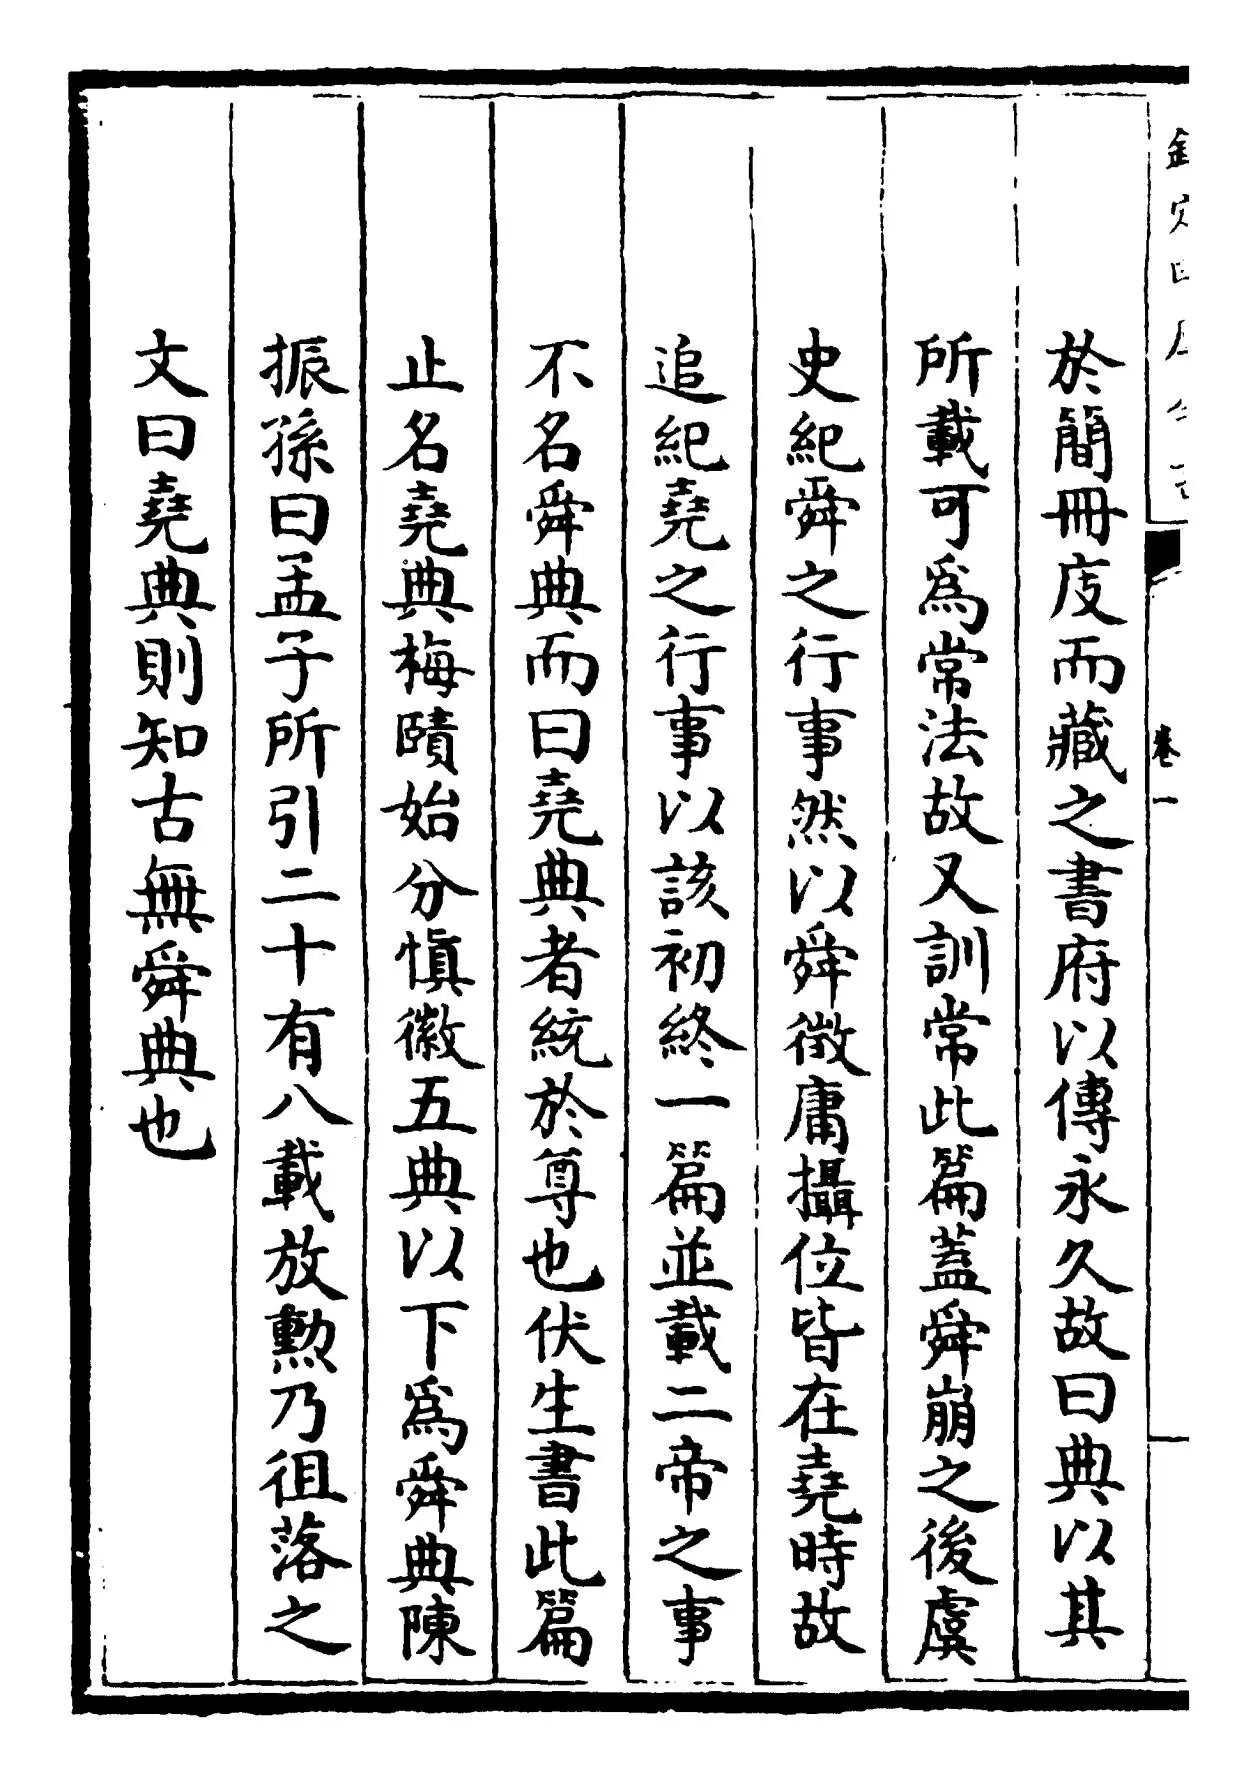 欽定四庫全書
卷一
於簡冊庋而藏之書府以傳永久故曰典以其
所載可爲常法故又訓常此篇蓋舜崩之後虞
史紀舜之行事然以舜徵庸攝位皆在堯時故
追紀堯之行事以該初終一篇並載二帝之事
不名舜典而曰堯典者統於尊也伏生書此篇
止名堯典梅賾始分愼徽五典以下爲舜典陳
振孫曰孟子所引二十有八載放勲乃徂落之
文曰堯典則知古無舜典也